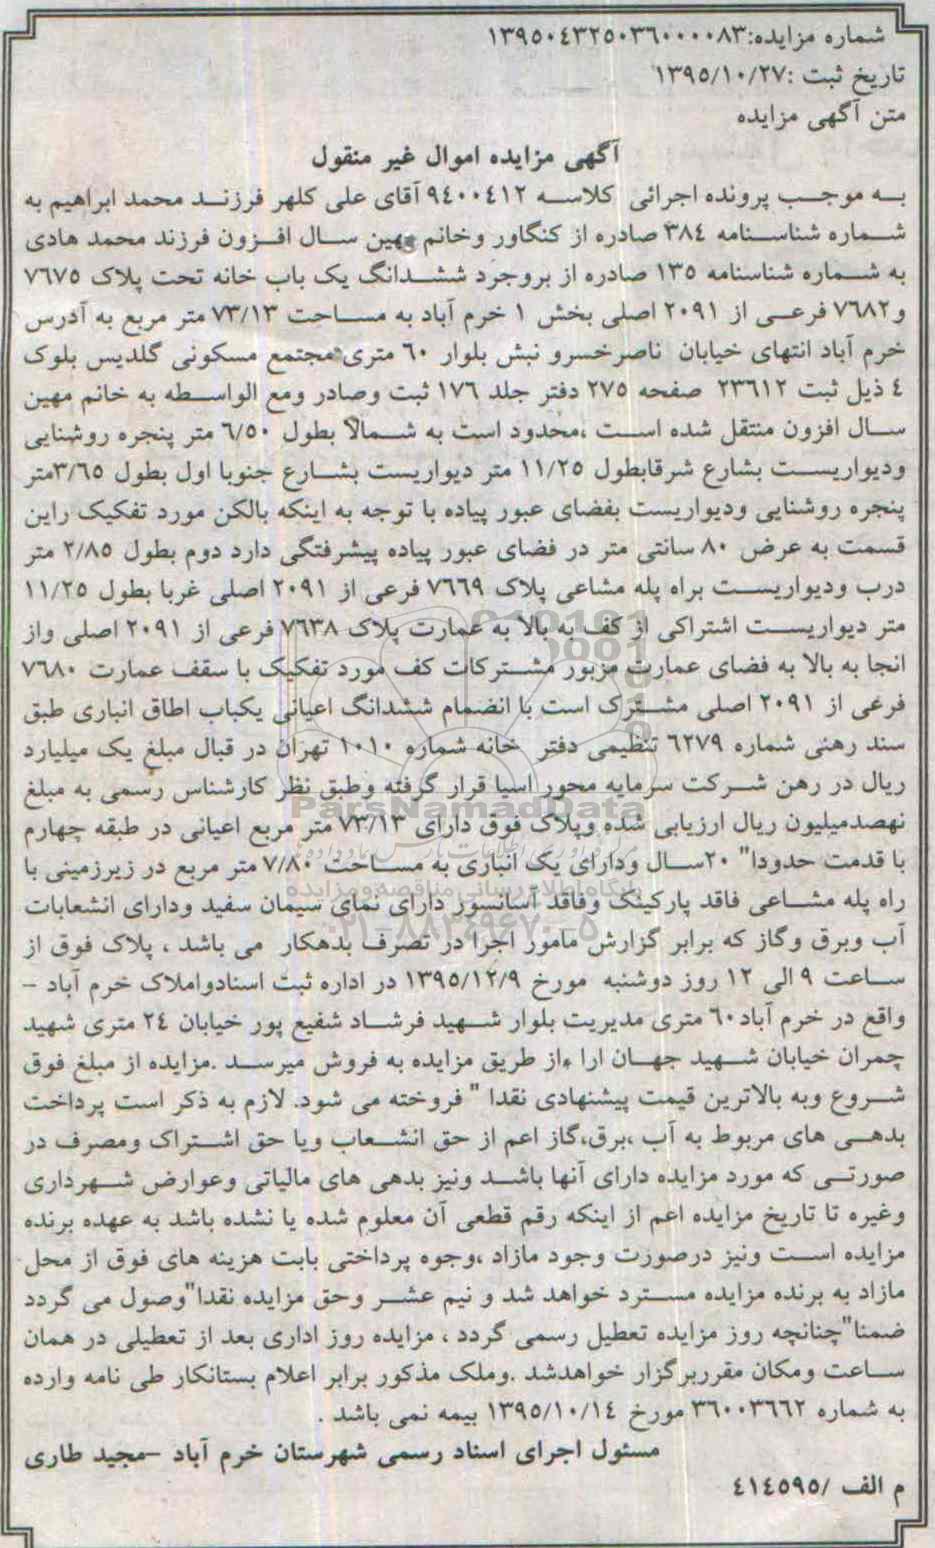 شماره مزایده:۱۳۹۵۰۴۳۲۵۰۳۶۰۰۰۰۸۳
تاریخ ثبت :۱۳۹۵/۱۰/۲۷
متن آگهی مزایده
آگهی مزایده اموال غیر منقول
به موجب پرونده اجرائی کلاسه ۹۴۰۰۴۱۲ آقای علی کلهر فرزند محمد ابراهیم به
شماره شناسنامه ۳۸۴ صادره از کنگاور وخانم مهین سال افزون فرزند محمد هادی
به شماره شناسنامه ۱۳۵ صادره از بروجرد ششدانگ یک باب خانه تحت پلاک ۷۶۷۵
و۷۶۸۲ فرعی از ۲۰۹۱ اصلی بخش ۱ خرم آباد به مساحت ۷۳/۱۳ متر مربع به آدرس
خرم آباد انتهای خیابان ناصرخسرو نبش بلوار ۶۰ متری مجتمع مسکونی گلدیس بلوک
۴ ذیل ثبت ۲۳۶۱۲ صفحه ۲۷۵ دفتر جلد ۱۷۶ ثبت وصادر ومع الواسطه به خانم مهین
سال افزون منتقل شده است ،محدود است به شمالا بطول ۶/۵۰ متر پنجره روشنایی
ودیواریست بشارع شرقابطول ۱۱/۲۵ متر دیواریست بشارع جنوبا اول بطول ۳/۶۵متر
پنجره روشنایی ودیواریست بفضای عبور پیاده با توجه به اینکه بالکن مورد تفکیک راین
قسمت به عرض ۸۰ سانتی متر در فضای عبور پیاده پیشرفتگی دارد دوم بطول ۲/۸۵ متر
درب ودیواریست براه پله مشاعی پلاک ۷۶۶۹ فرعی از ۲۰۹۱ اصلی غربا بطول ۱۱/۲۵
متر دیواریست اشتراکی از کف به بالا به عمارت پلاک ۷۶۳۸ فرعی از ۲۰۹۱ اصلی واز
انجا به بالا به فضای عمارت مزبور مشترکات کف مورد تفکیک با سقف عمارت ۷۶۸۰
فرعی از ۲۰۹۱ اصلی مشترک است با انضمام ششدانگ اعیانی یکباب اطاق انباری طبق
سند رهنی شماره ۶۲۷۹ تنظیمی دفتر خانه شماره ۱۰۱۰ تهران در قبال مبلغ یک میلیارد
ریال در رهن شرکت سرمایه محور اسیا قرار گرفته وطبق نظر کارشناس رسمی به مبلغ
نهصدمیلیون ریال ارزیابی شده وپلاک فوق دارای ۷۳/۱۳ متر مربع اعیانی در طبقه چهارم
با قدمت حدودا" ۲۰سال ودارای یک انباری به مساحت ۷/۸۰ متر مربع در زیرزمینی با
راه پله مشاعی فاقد پارکینگ وفاقد آسانسور دارای نمای سیمان سفید ودارای انشعابات
آب وبرق وگاز که برابر گزارش مامور اجرا در تصرف بدهکار می باشد ، پلاک فوق از
ساعت ۹ الی ۱۲ روز دوشنبه مورخ ۱۳۹۵/۱۲/۹ در اداره ثبت اسنادواملاک خرم آباد –
واقع در خرم آباد۶۰ متری مدیریت بلوار شهید فرشاد شفیع پور خیابان ۲۴ متری شهید
چمران خیابان شهید جهان ارا ،از طریق مزایده به فروش میرسد .مزایده از مبلغ فوق
شروع وبه بالاترین قیمت پیشنهادی نقدا " فروخته می شود. لازم به ذکر است پرداخت
بدهی های مربوط به آب ،برق،گاز اعم از حق انشعاب ویا حق اشتراک ومصرف در
صورتی که مورد مزایده دارای آنها باشد ونیز بدهی های مالیاتی وعوارض شهرداری
وغیره تا تاریخ مزایده اعم از اینکه رقم قطعی آن معلوم شده یا نشده باشد به عهده برنده
مزایده است ونیز درصورت وجود مازاد ،وجوه پرداختی بابت هزینه های فوق از محل
مازاد به برنده مزایده مسترد خواهد شد و نیم عشر وحق مزایده نقدا"وصول می گردد
ضمنا"چنانچه روز مزایده تعطیل رسمی گردد ، مزایده روز اداری بعد از تعطیلی در همان
ساعت ومکان مقرربرگزار خواهدشد .وملک مذکور برابر اعلام بستانکار طی نامه وارده
به شماره ۳۶۰۰۳۶۶۲ مورخ ۱۳۹۵/۱۰/۱۴ بیمه نمی باشد .
مسئول اجرای اسناد رسمی شهرستان خرم آباد –مجید طاری
م الف /۴۱۴۵۹۵
ParsNamadData
پایگاه اطلاع رسانی مناقصه و مزایده
۰۲۱-۸۸۳۴۹۶۷۰-۵